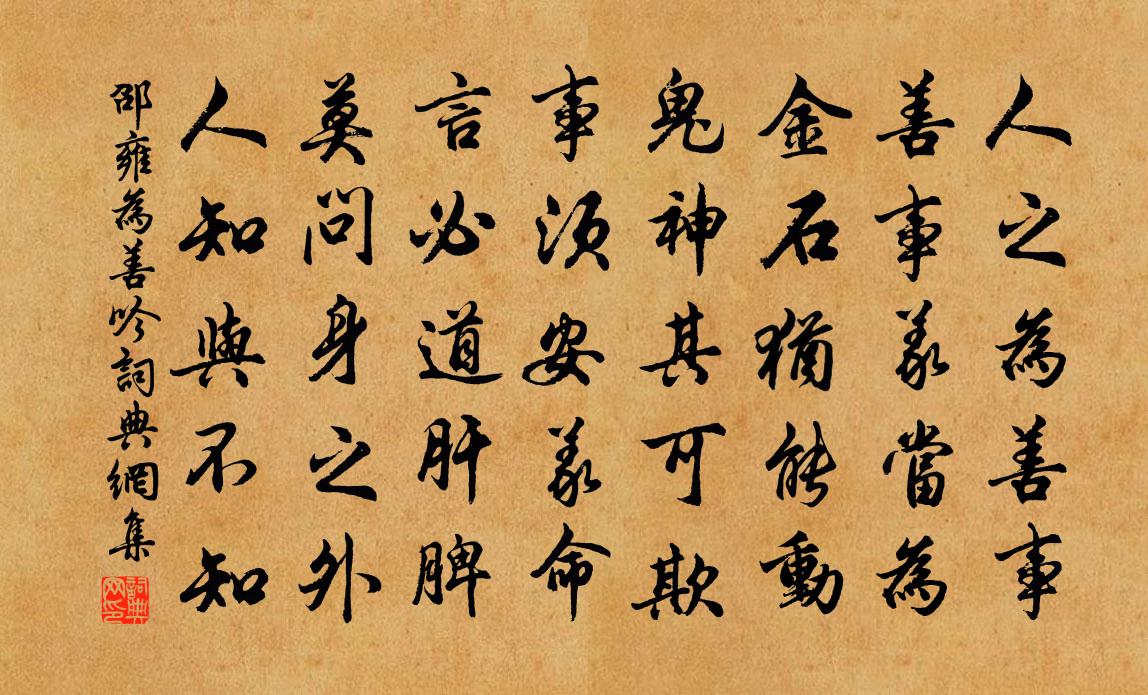 人之為善事
善事義當為
金石猶能動
鬼神其可欺
事須安義命
言必道肝脾
莫問身之外
人知與不知
邵雍為善吟詞典網集
詞典网印